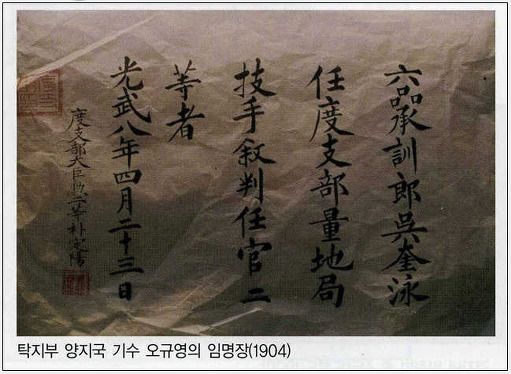 六品承訓郎吳奎泳
任度支部量地局
技手敘判任官二
等者
光武八年四月二十三日
度支部大臣勳二等朴定陽
탁지부 양지국 기수 오규영의 임명장(1904)